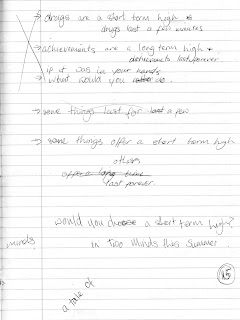 → drugs are a short term high &
drugs last a few minutes
→ achievements are a long term high &
achievements last forever
if it was in your hands
→ what would you do.
→ some things last for a few
→ some things offer a short term high
others
offer a long time
last forever.
would you choose a short term high?
minds
in two minds this summer.
15
a tale of